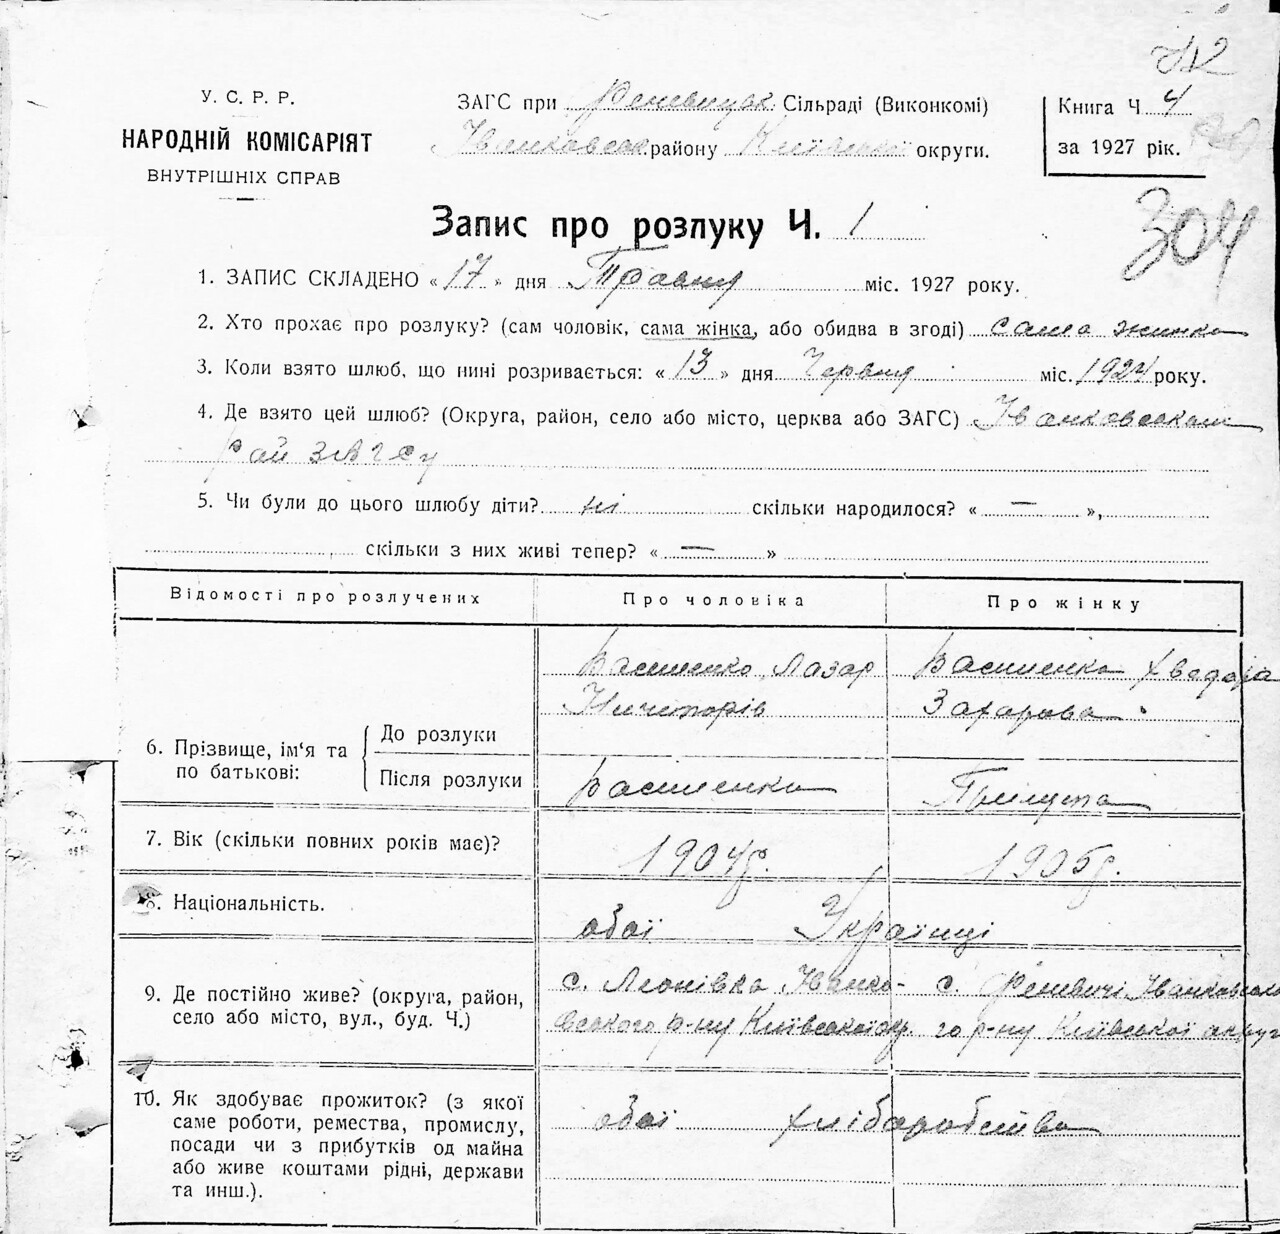 У. С. Р. Р.
НАРОДНІЙ КОМІСАРІЯТ
ВНУТРІШНІХ СПРАВ
ЗАГС при Феневицьк. Сільраді (Виконкомі)
Іванковськ. району Київської округи.
Книга Ч 4
за 1927 рік.
304
Запис про розлуку Ч. 1
1. ЗАПИС СКЛАДЕНО « 17 » дня Травня міс. 1927 року.
2. Хто прохає про розлуку? (сам чоловік, сама жінка, або обидва в згоді) сама жинка
3. Коли взято шлюб, що нині розривається: « 13 » дня Червня міс. 1924 року.
4. Де взято цей шлюб? (Округа, район, село або місто, церква або ЗАГС) Іванковском
рай ЗАГСу
5. Чи були до цього шлюбу діти? ні скільки народилося? « — »,
скільки з них живі тепер? « — »
Відомості про розлучених Про чоловіка Про жінку
Василенко Лазар Василенко Хведора
Ничипорів Захарова
6. Прізвище, ім'я та по батькові: До розлуки
Після розлуки Василенко
7. Вік (скільки повних років має)? 1904р. 1905р.
8. Національність. обої Українці
9. Де постійно живе? (округа, район, село або місто, вул., буд. Ч.) с. Леонівка Іванко-
вського р-ну Київської ок. с. Феневичі Іванковсько
го р-ну Київської округ
10. Як здобуває прожиток? (з якої обої хліборобство
саме роботи, ремества, промислу,
посади чи з прибутків од майна
або живе коштами рідні, держави
та инш.).